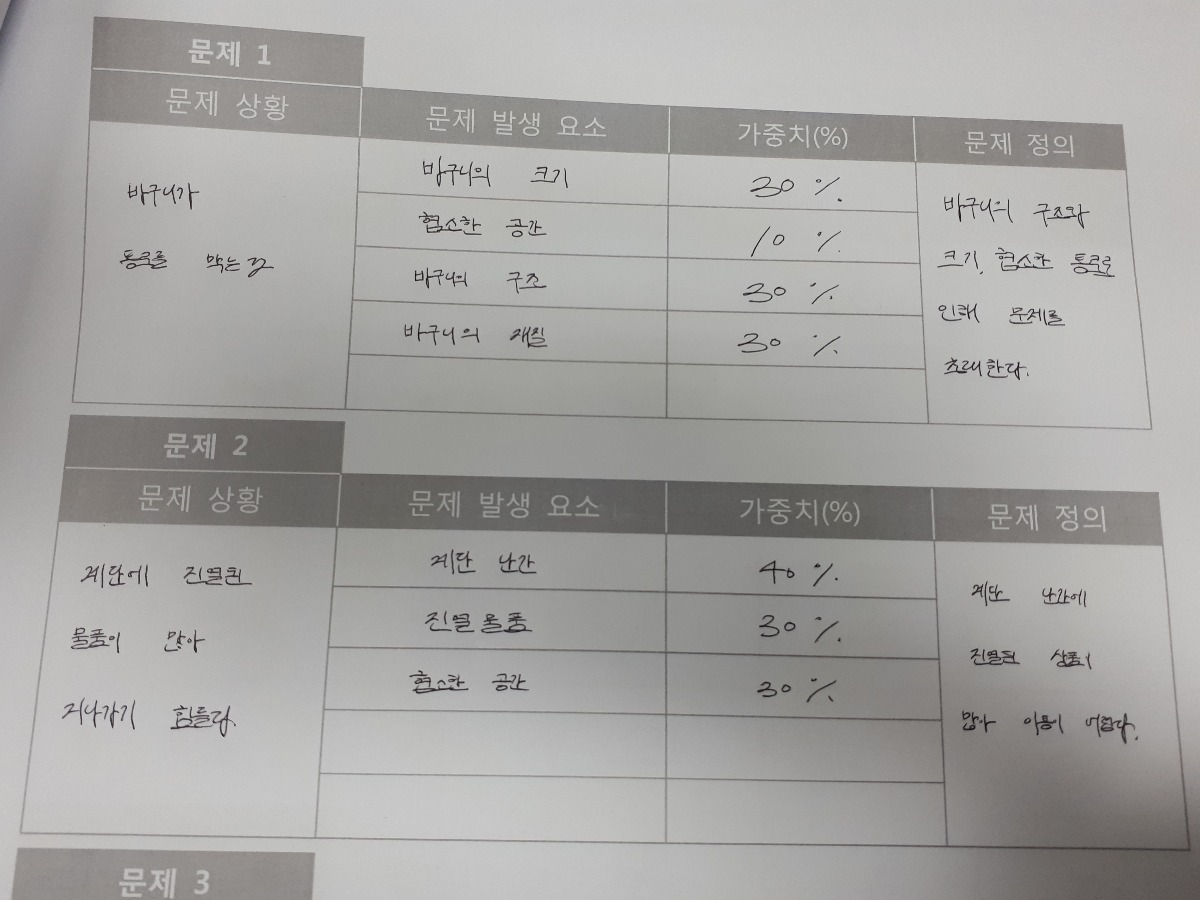 문제 1
문제 상황 문제 발생 요소 가중치(%) 문제 정의
바구니가
통로를 막는 것
바구니의 크기 30 %.
협소한 공간 10 %.
바구니의 구조 30 %.
바구니의 재질 30 %.
바구니의 구조와
크기, 협소한 통로로
인해 문제를
초래한다.
문제 2
문제 상황 문제 발생 요소 가중치(%) 문제 정의
계단에 진열된
물품이 많아
지나가기 힘들다.
계단 난간 40 %.
진열 물품 30 %.
협소한 공간 30 %.
계단 난간에
진열된 상품이
많아 이용이 어렵다.
문제 3